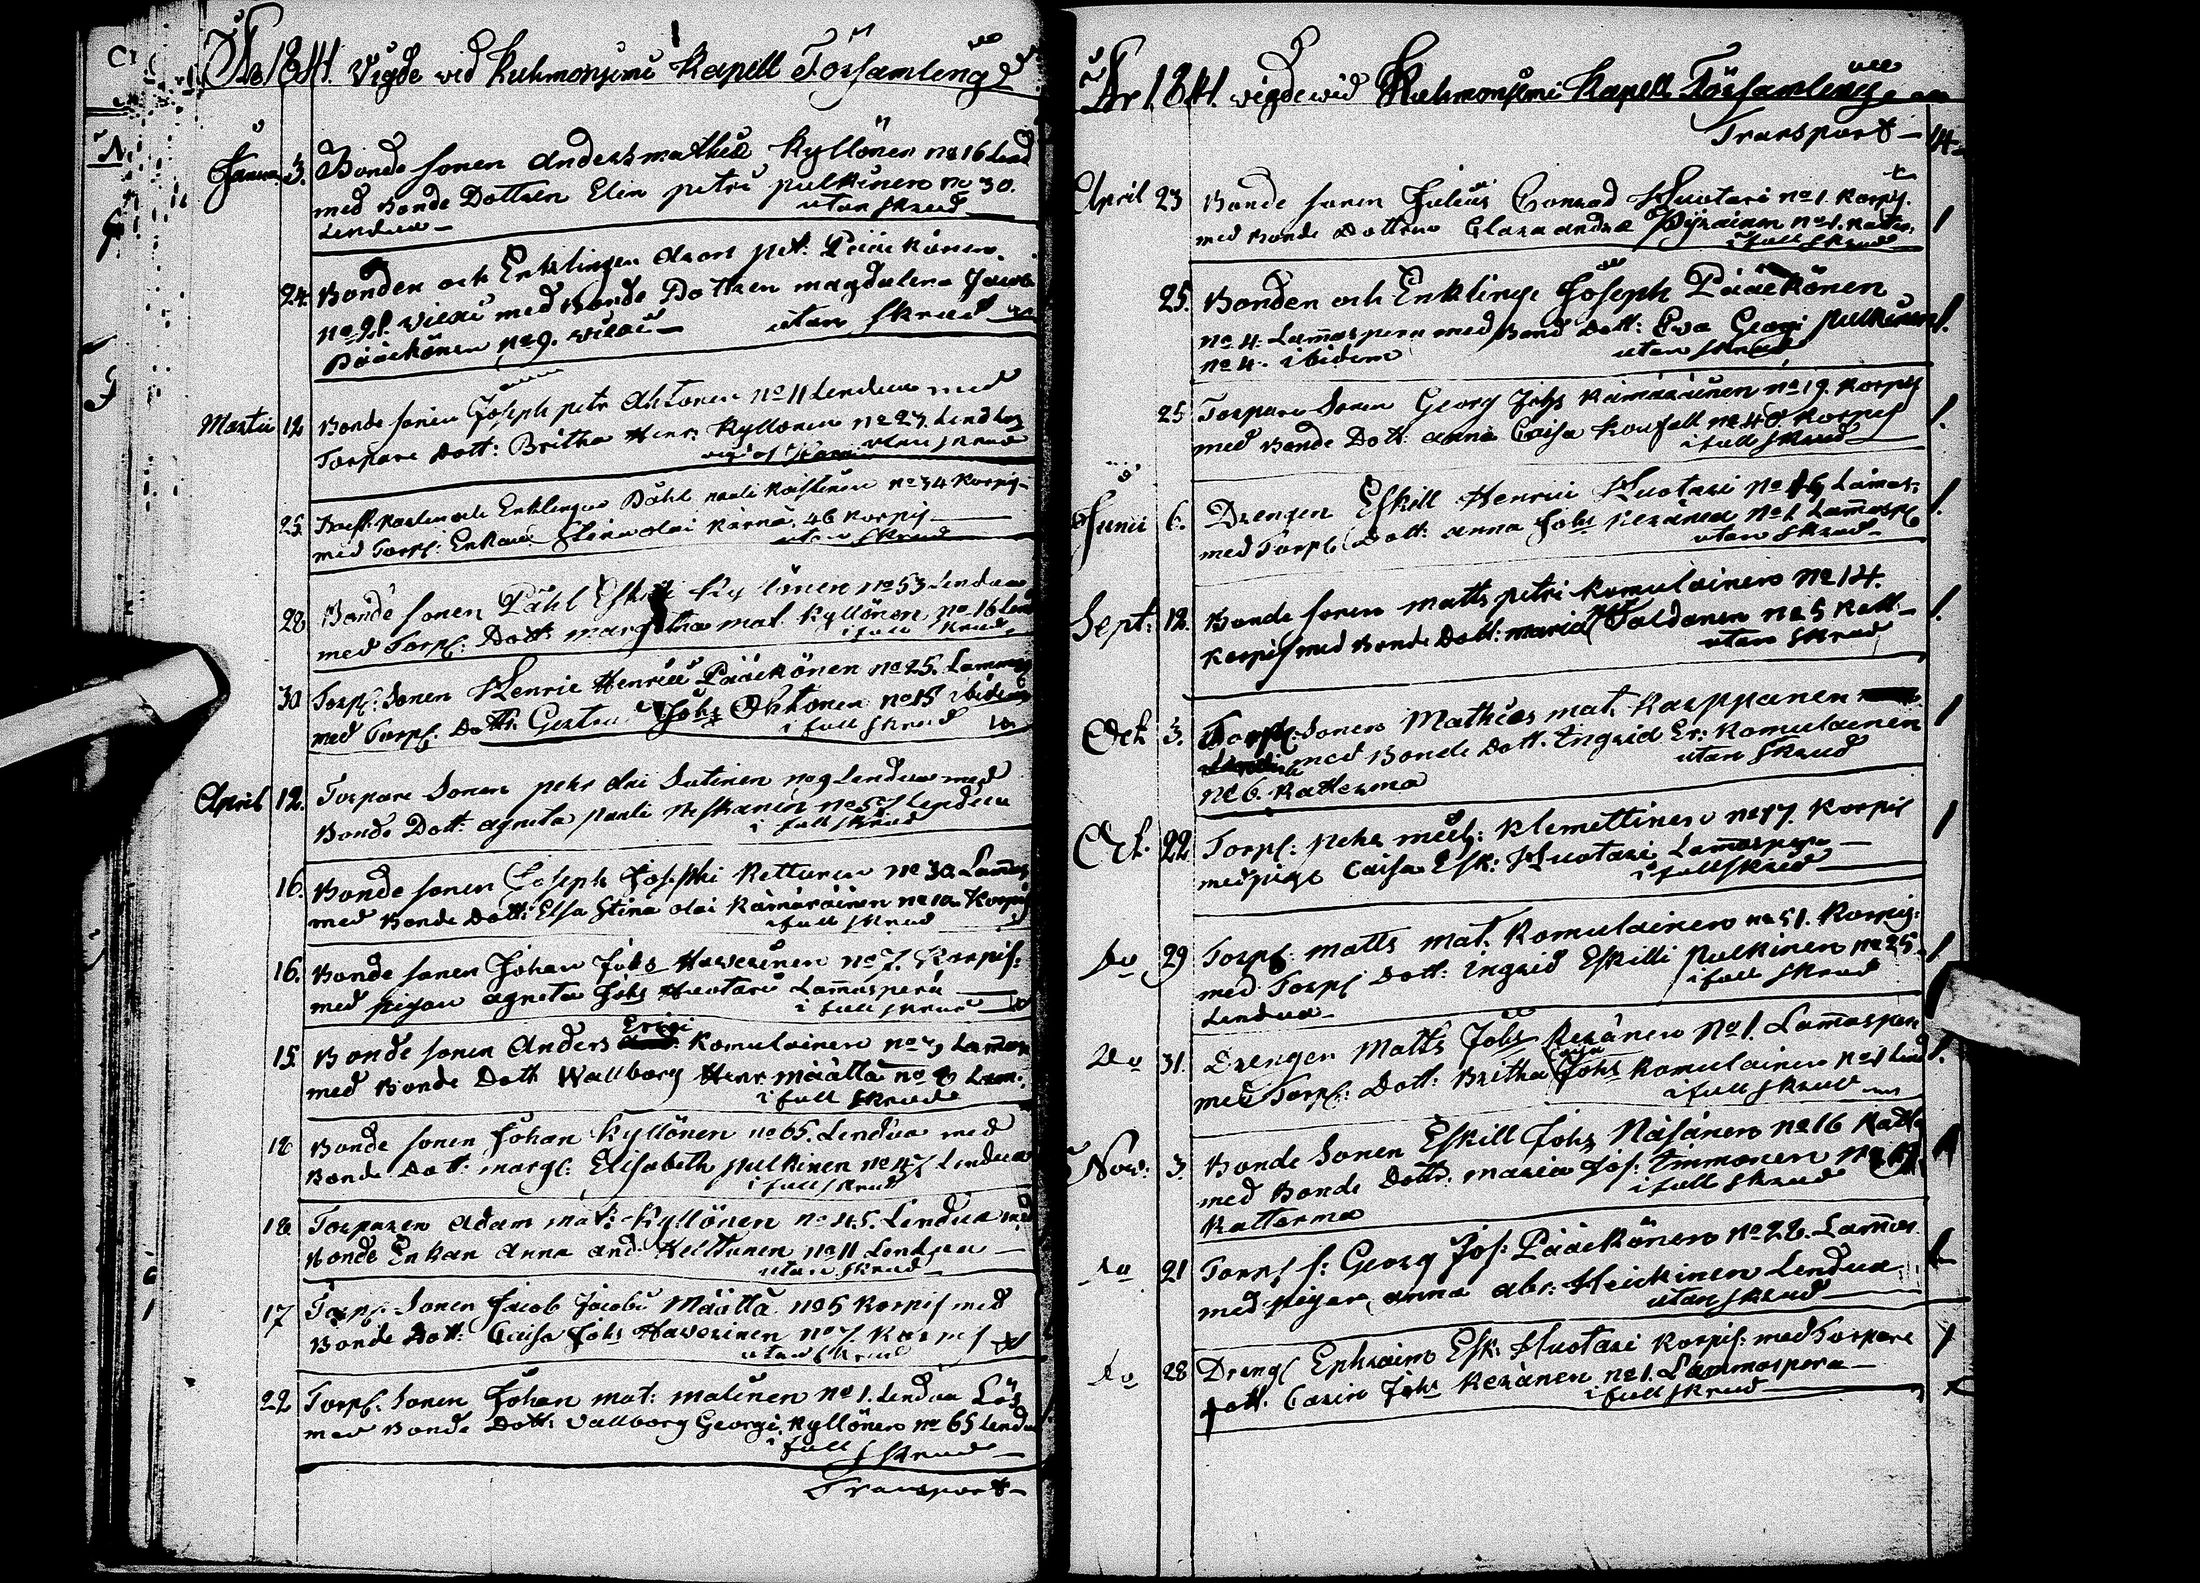 År 1841. Vigde vid Kuhmoniemi Kapell Församling
Januar. 3. Bonde sonen Anders Mathiæ Kyllönen No 16 Lend
med Bonde Dottren Elin Petri Pulkinen No 30.
Lendua — utan skrud
24. Bonden och Enklingen Aron Pet: Pääckönen
No 21. Wieki med Bonde Dottren Magdalena Jacob
Pääckönen No 9. Wieki — utan skrud
Martii 12 Bonde sonen Joseph Petr Ahtonen No 11 Lendua med
Torpare Dott: Britha Henr: Kyllönen No 27. Lendua
utan skrud
25. Enklingen Påhl Pauli No 34 Korpis
med Torp: Enkan Stina Olai Kärnä 46 Korpis
utan skrud
28 Bonde sonen Påhl Esk Kyllönen No 53 Lendua
med Torp: Dott: Margetha Mat. Kyllönen No 16 Lend
i full skrud
30 Torp: Sonen Henric Henrici Pääckönen No 25. Lammas
med Torp: Dott: Gertru Johs Ohtonen No 15 ibidem
i full skrud
April 12. Torpare Sonen Pehr Olai Sutinen No 9 Lendua med
Bonde Dott: Agneta Pauli No 57 Lendua
i full skrud
16. Bonde sonen Joseph Josephi Kettunen No 30 Lam̄as
med Bonde Dott: Elsa Stina Olai Kämäräinen No 10 Korpis
i full skrud
16. Bonde sonen Johan Johs Haverinen No 7. Korpis:
med pigan Agneta Johs Huotari Lam̄asperä
i full skrud
15. Bonde sonen Anders Erici Komulainen No 9 Lam̄as
med Bonde Dott Wallborg Henr: Määttä No 9 Lam:
i full skrud
18 Bonde sonen Johan Kyllönen No 65. Lendua med
Bonde Dott: Marg: Elisabeth Pulkinen No 47 Lendua
i full skrud
18. Torparen Adam Mat: Kyllönen No 45. Lendua med
Bonde Enkan Anna And: Helttunen No 11 Lendua —
utan skrud
17 Torp: Sonen Jacob Jacobi Määttä No 5 Korpis med
Bonde Dott: Caisa Johs Haverinen No 7. Korpis
utan skrud
22 Torp: Sonen Johan Mat: Malinen No 1. Lendua
med Bonde Dott: Vallborg Georgi Kyllönen No 65 Lendua
i full skrud
Transport —
År 1841. vigde wid Kuhmoniemi Kapell Församling
Transport — 14
April 23 Bonde sonen Julius Conrad Huotari No 1. Korpis.
med Bonde Dottren Clara Andræ Pyräinen No 1. Katter. 1
i full skrud
25. Bonden och Enkling Joseph Pääckönen
No 4. Lam̄aspera med Bond Dott: Eva Georgi Pulkinen 1.
No 4. ibidem utan skrud
25 Torpare Sonen Georg Johs Kämäräinen No 19. Korpis
med Bonde Dott: Anna Caisa No 48 Korpis 1.
i full skrud
Junii 6. Drengen Eskill Henrici Huotari No Lam̄as: 1.
med Torp: Dott: Anna Johs Keränen No 1 Lam̄aspe
utan skrud
Sept: 12. Bonde sonen Matts Petri Komulainen No 14.
Korpis med Bonde Dott: Maria Toldanen No 5 Katt — 1.
utan skrud
Oct 3. Torp: Sonen Mathias Mat. Karppanen 1
med Bonde Dott. Ingrid Er: Komulainen
No 6. Katterma utan skrud
Oct. 22 Torp: Pehr Mich: Klemettinen No 17. Korpis 1
med pige Caisa Esk: Huotari Lam̄aspera —
i full skrud
do 29 Torp: Matts Mat. Komulainen No 51. Korpis:
med Torp: Dott: Ingrid Eskilli Pulkinen No 25. 1
Lendua — i full skrud
do 31. Drengen Matts Johs Keränen No 1. Lam̄aspera
med Torp: Dott: Britha Caisa Johs Komulainen No 1 Lend 1.
i full skrud
Nov: 3. Bonde Sonen Eskill Johs Näsänen No 16 Katt
med Bonde Dottr. Maria Jos: Immonen No 1
Katterma i full skrud
do 21 Torp s: Georg Jos: Pääckönen No 22. Lam̄as 1
med pigan Anna Abr: Heickinen Lendua
utan skrud
do 28 Dreng Ephraim Esk: Huotari Korpis: med Torpare 1
Dott: Carin Johs Keränen No 1. Lammaspera —
i full skrud